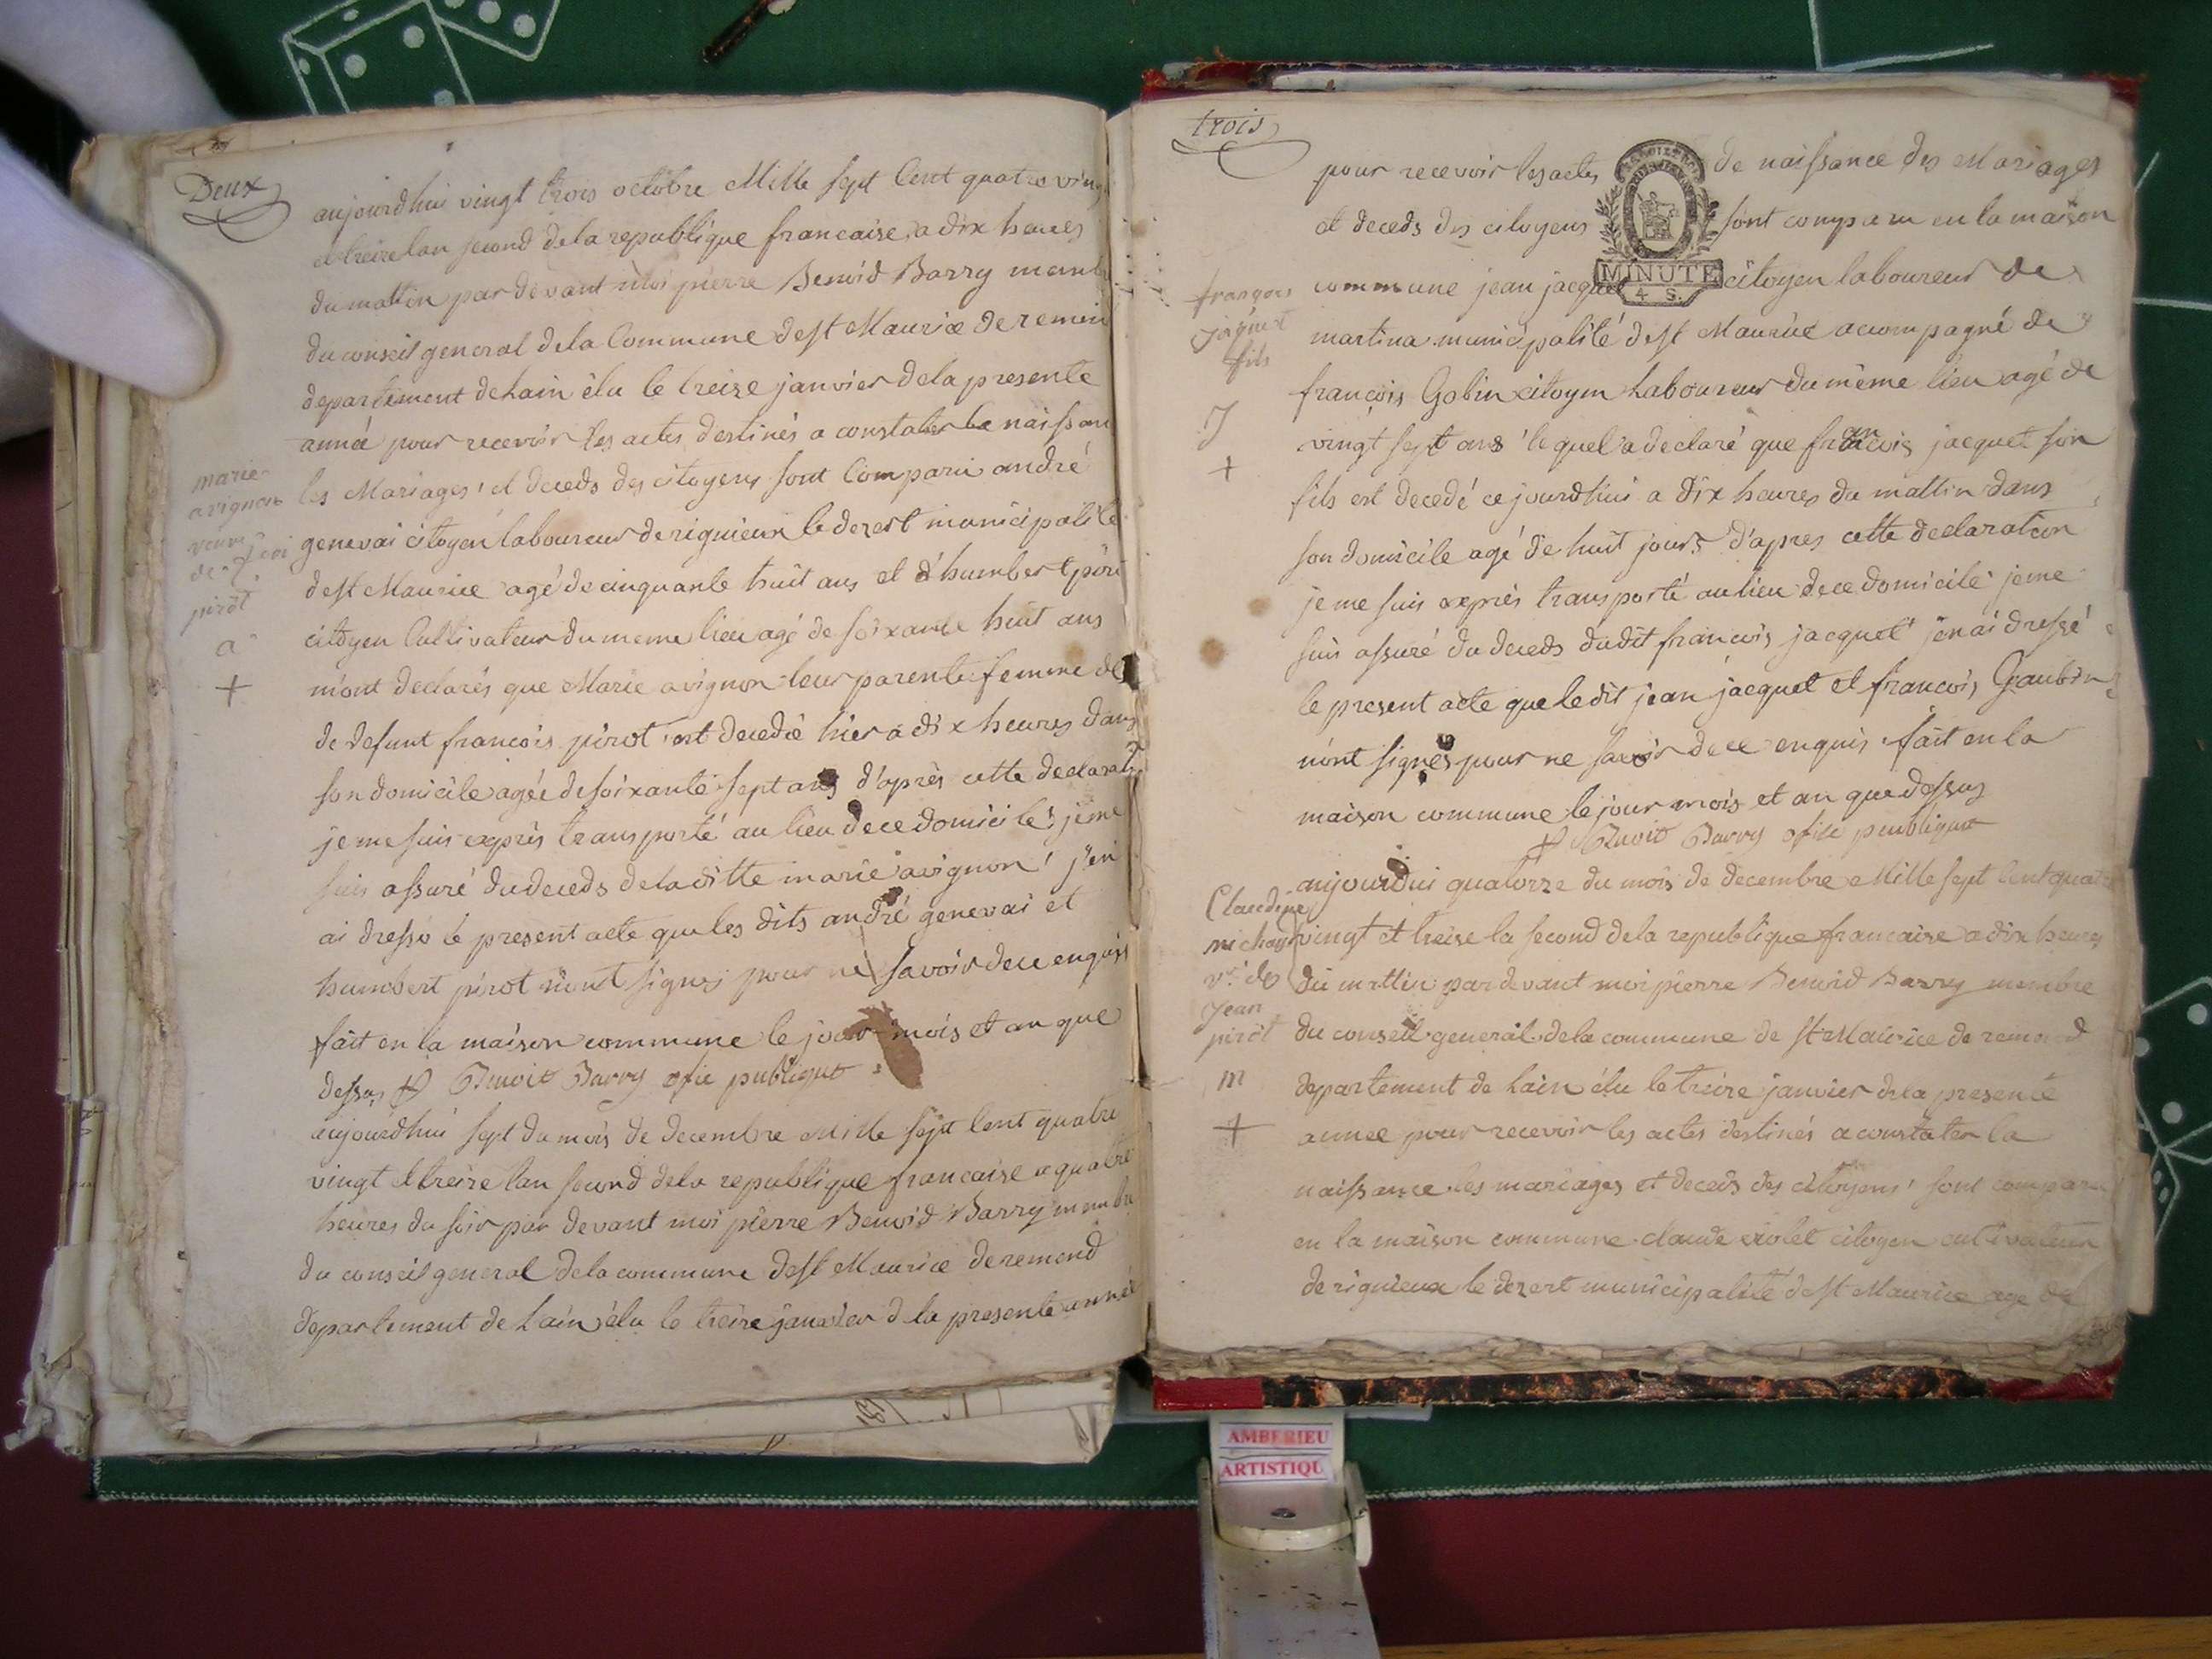 Deux
aujourdhui vingt trois octobre Mille sept Cent quatre ving
et treize lan second dela republique francaise a dix heures
du mattin par devant moi pierre Benoid Barry memb
du conseil general dela Commune dest Maurice de remen
departement de Lain élu le treise janvier dela presente
année pour recevoir les actes destinés a constater la naissan
les Mariages et deceds des citoyens sont Comparu andré
genevai citoyen laboureur de rignieux le dezert municipalité
dest Maurice agé de cinquante huit ans et d'humbert piro
citoyen Cultivateur du meme lieu agé de soixante huit ans
m'ont declarés que Marie avignon leur parente femme de
de defunt francois pirot est decedée hier a dix heures dans
son domicile agée de soixante sept ans d'après cette declarati
je me suis exprès transporté au lieu de ce domicile je me
suis assuré du deceds de laditte marie avignon j'en
ai dressé le present acte que les dits andré genevai et
humbert pirot n'ont signés pour ne savoir de ce enquis
fait en la maison commune le jour mois et an que
dessus P Benoit Barry ofie publique
aujourdhui sept du mois de decembre Mille sept Cent quatre
vingt et treize lan second dela republique francaise a quatre
heures du soir par devant moi pierre Benoid Barry membre
du conseil general dela commune dest Maurice de remend
departement de Lain élu le treize janvier d la presente année
marie
avignon
veuve
pirot
a
+
trois
pour recevoir les actes de naissance des Mariages
et deceds des citoyens sont comparu en la maison
MINUTE
4 S.
commune jean jacquet citoyen laboureur de
martina municipalité dest Maurice accompagné de
françois Gobin citoyen Laboureur du même lieu agé de
vingt sept ans lequel a declaré que francois jacquet son
fils est decedé ce jourdhui a dix heures du mattin dans
son domicile agé de huit jours d'apres cette declaration
je me suis exprès transporté au lieu de ce domicile je me
suis assuré du deceds dudit francois jacquet j'en ai dressé
le present acte que ledit jean jacquet et francois Gaubin
n'ont signés pour ne savoir de ce enquis fait en la
maison commune le jour mois et an que dessus
P Benoit Barry ofise publique
aujourdui quatorze du mois de decembre Mille sept Cent quatre
vingt et treise la second dela republique francaise a dix heures
du mattin par devant moi pierre Benoid Barry membre
du conseil general dela commune de st Maurice de remend
departement de Lain élu le treize janvier dela presente
annee pour recevoir les actes destinés a constater la
naissance les mariages et deceds des citoyens sont comparu
en la maison commune claude violet citoyen cultivateur
de rignieux le dezert municipalité dest Maurice age de
françois
jaquet
fils
J
+
Claudine
michaud
ve de
jean
pirot
m
+
AMBERIEU
ARTISTIQU